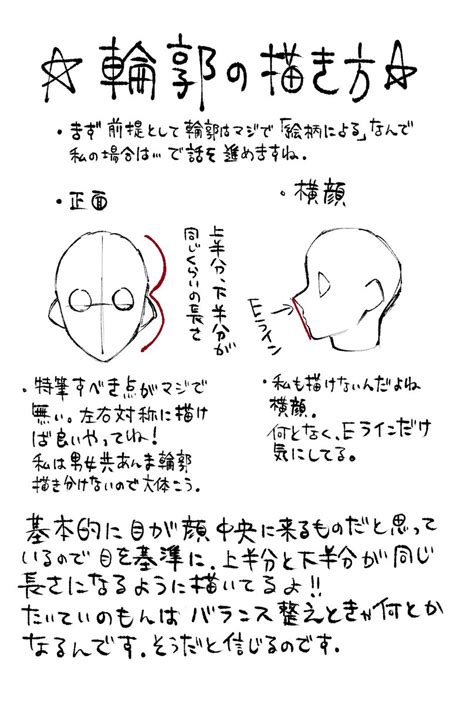 ☆輪郭の描き方☆
・まず前提として輪郭はマジで「絵柄による」なんで
私の場合は…で話を進めますね.
・正面
上半分、下半分が
同じくらいの長さ
・横顔
Eライン
・特筆すべき点がマジで
無い。左右対称に描け
ば良いやってね!
私は男女共あんま輪郭
描き分けないので大体こう.
・私も描けないんだよね
横顔.
何となく、Eラインだけ
気にしてる。
基本的に目が顔中央に来るものだと思って
いるので目を基準に、上半分と下半分が同じ
長さになるように描いてるよ!!
たいていのもんはバランス整えときゃ何とか
なるんです.そうだと信じるのです.